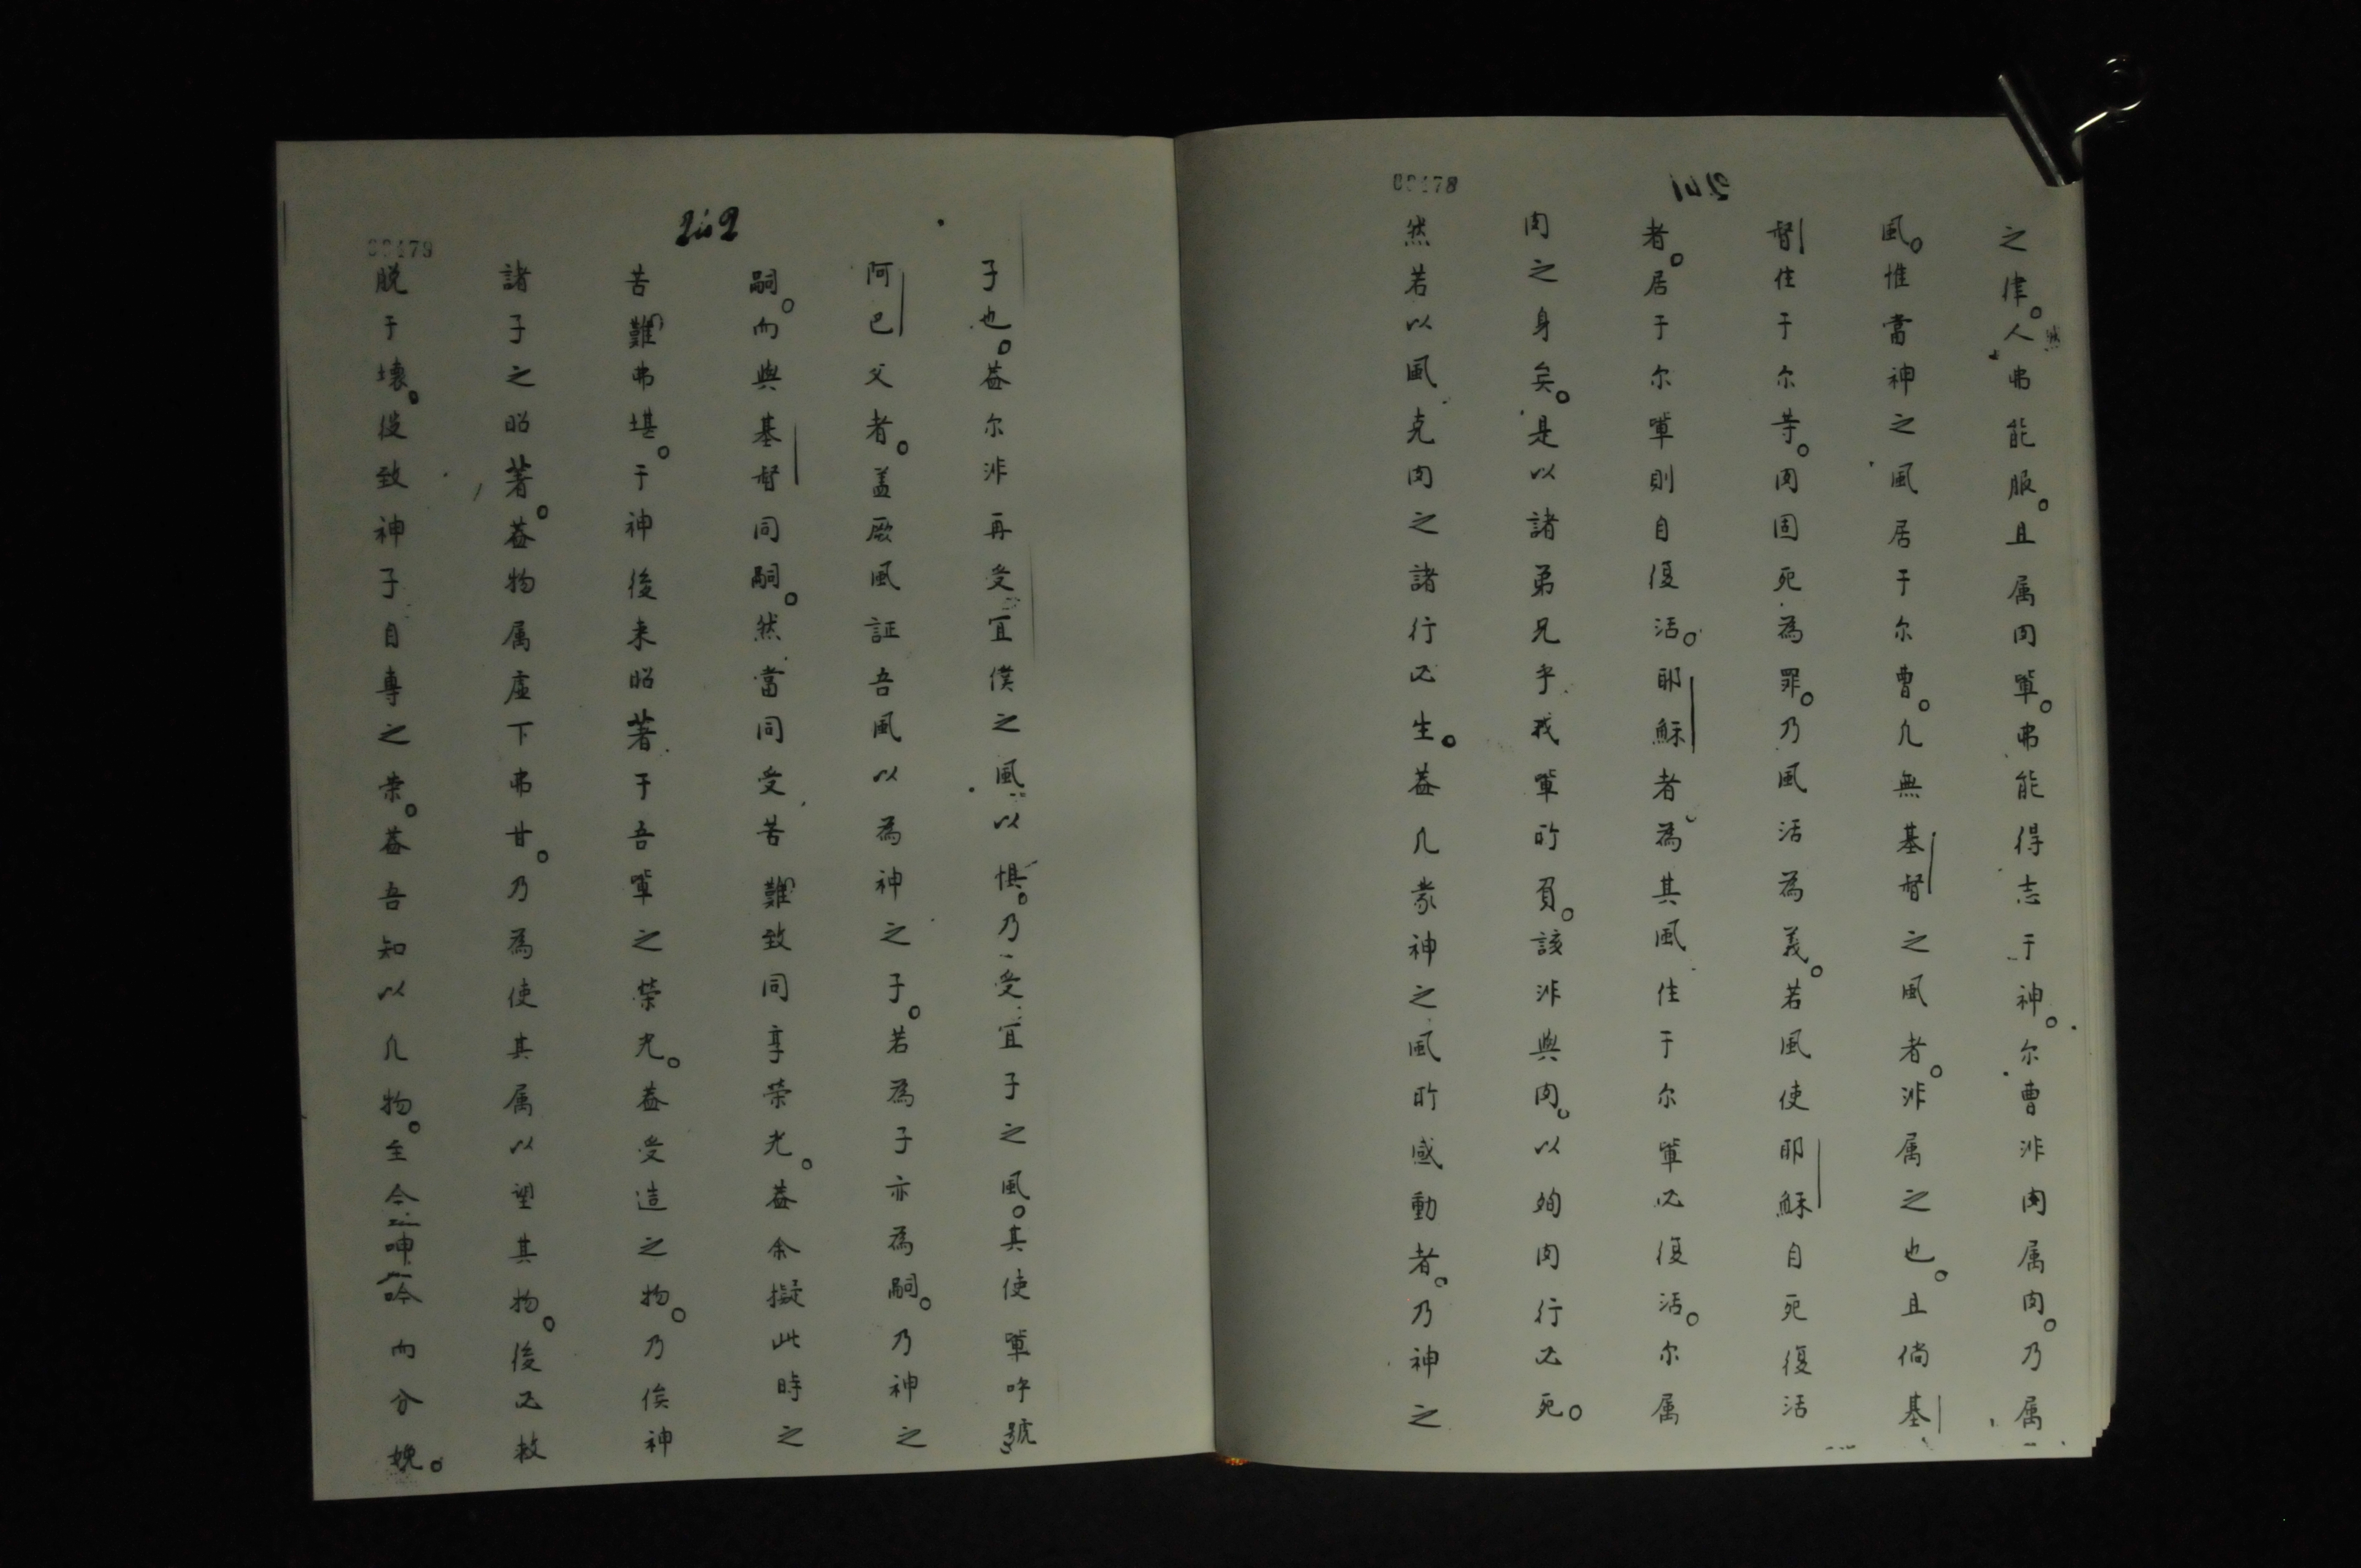 241
00178
之律。然人弗能服。且属肉軰。弗能得志于神。尔曹非肉属肉。乃属
風。惟當神之風居于尔曹。凢無基督之風者。非属之也。且倘基
督住于尔等。肉固死為罪。乃風活為義。若風使耶穌自死復活
者。居于尔軰則自復活。耶穌者為其風住于尔軰必復活。尔属
肉之身矣。是以諸弟兄乎我軰所負。該非與肉。以殉肉行必死。
然若以風克肉之諸行必生。葢凢蒙神之風所感動者。乃神之
242
00179
子也。葢尔非再受宜僕之風以惧。乃受宜子之風。其使軰呼號
阿巴父者。盖厥風証吾風以為神之子。若為子亦為嗣。乃神之
嗣。而與基督同嗣。然當同受苦難致同享荣光。葢余擬此時之
苦難弗堪。于神後来昭著于吾軰之榮光。葢受造之物。乃俟神
諸子之昭著。葢物属虛下弗甘。乃為使其属以望其物。後必救
脱于壊。後致神子自專之荣。葢吾知以凢物。至今呻吟而分娩。